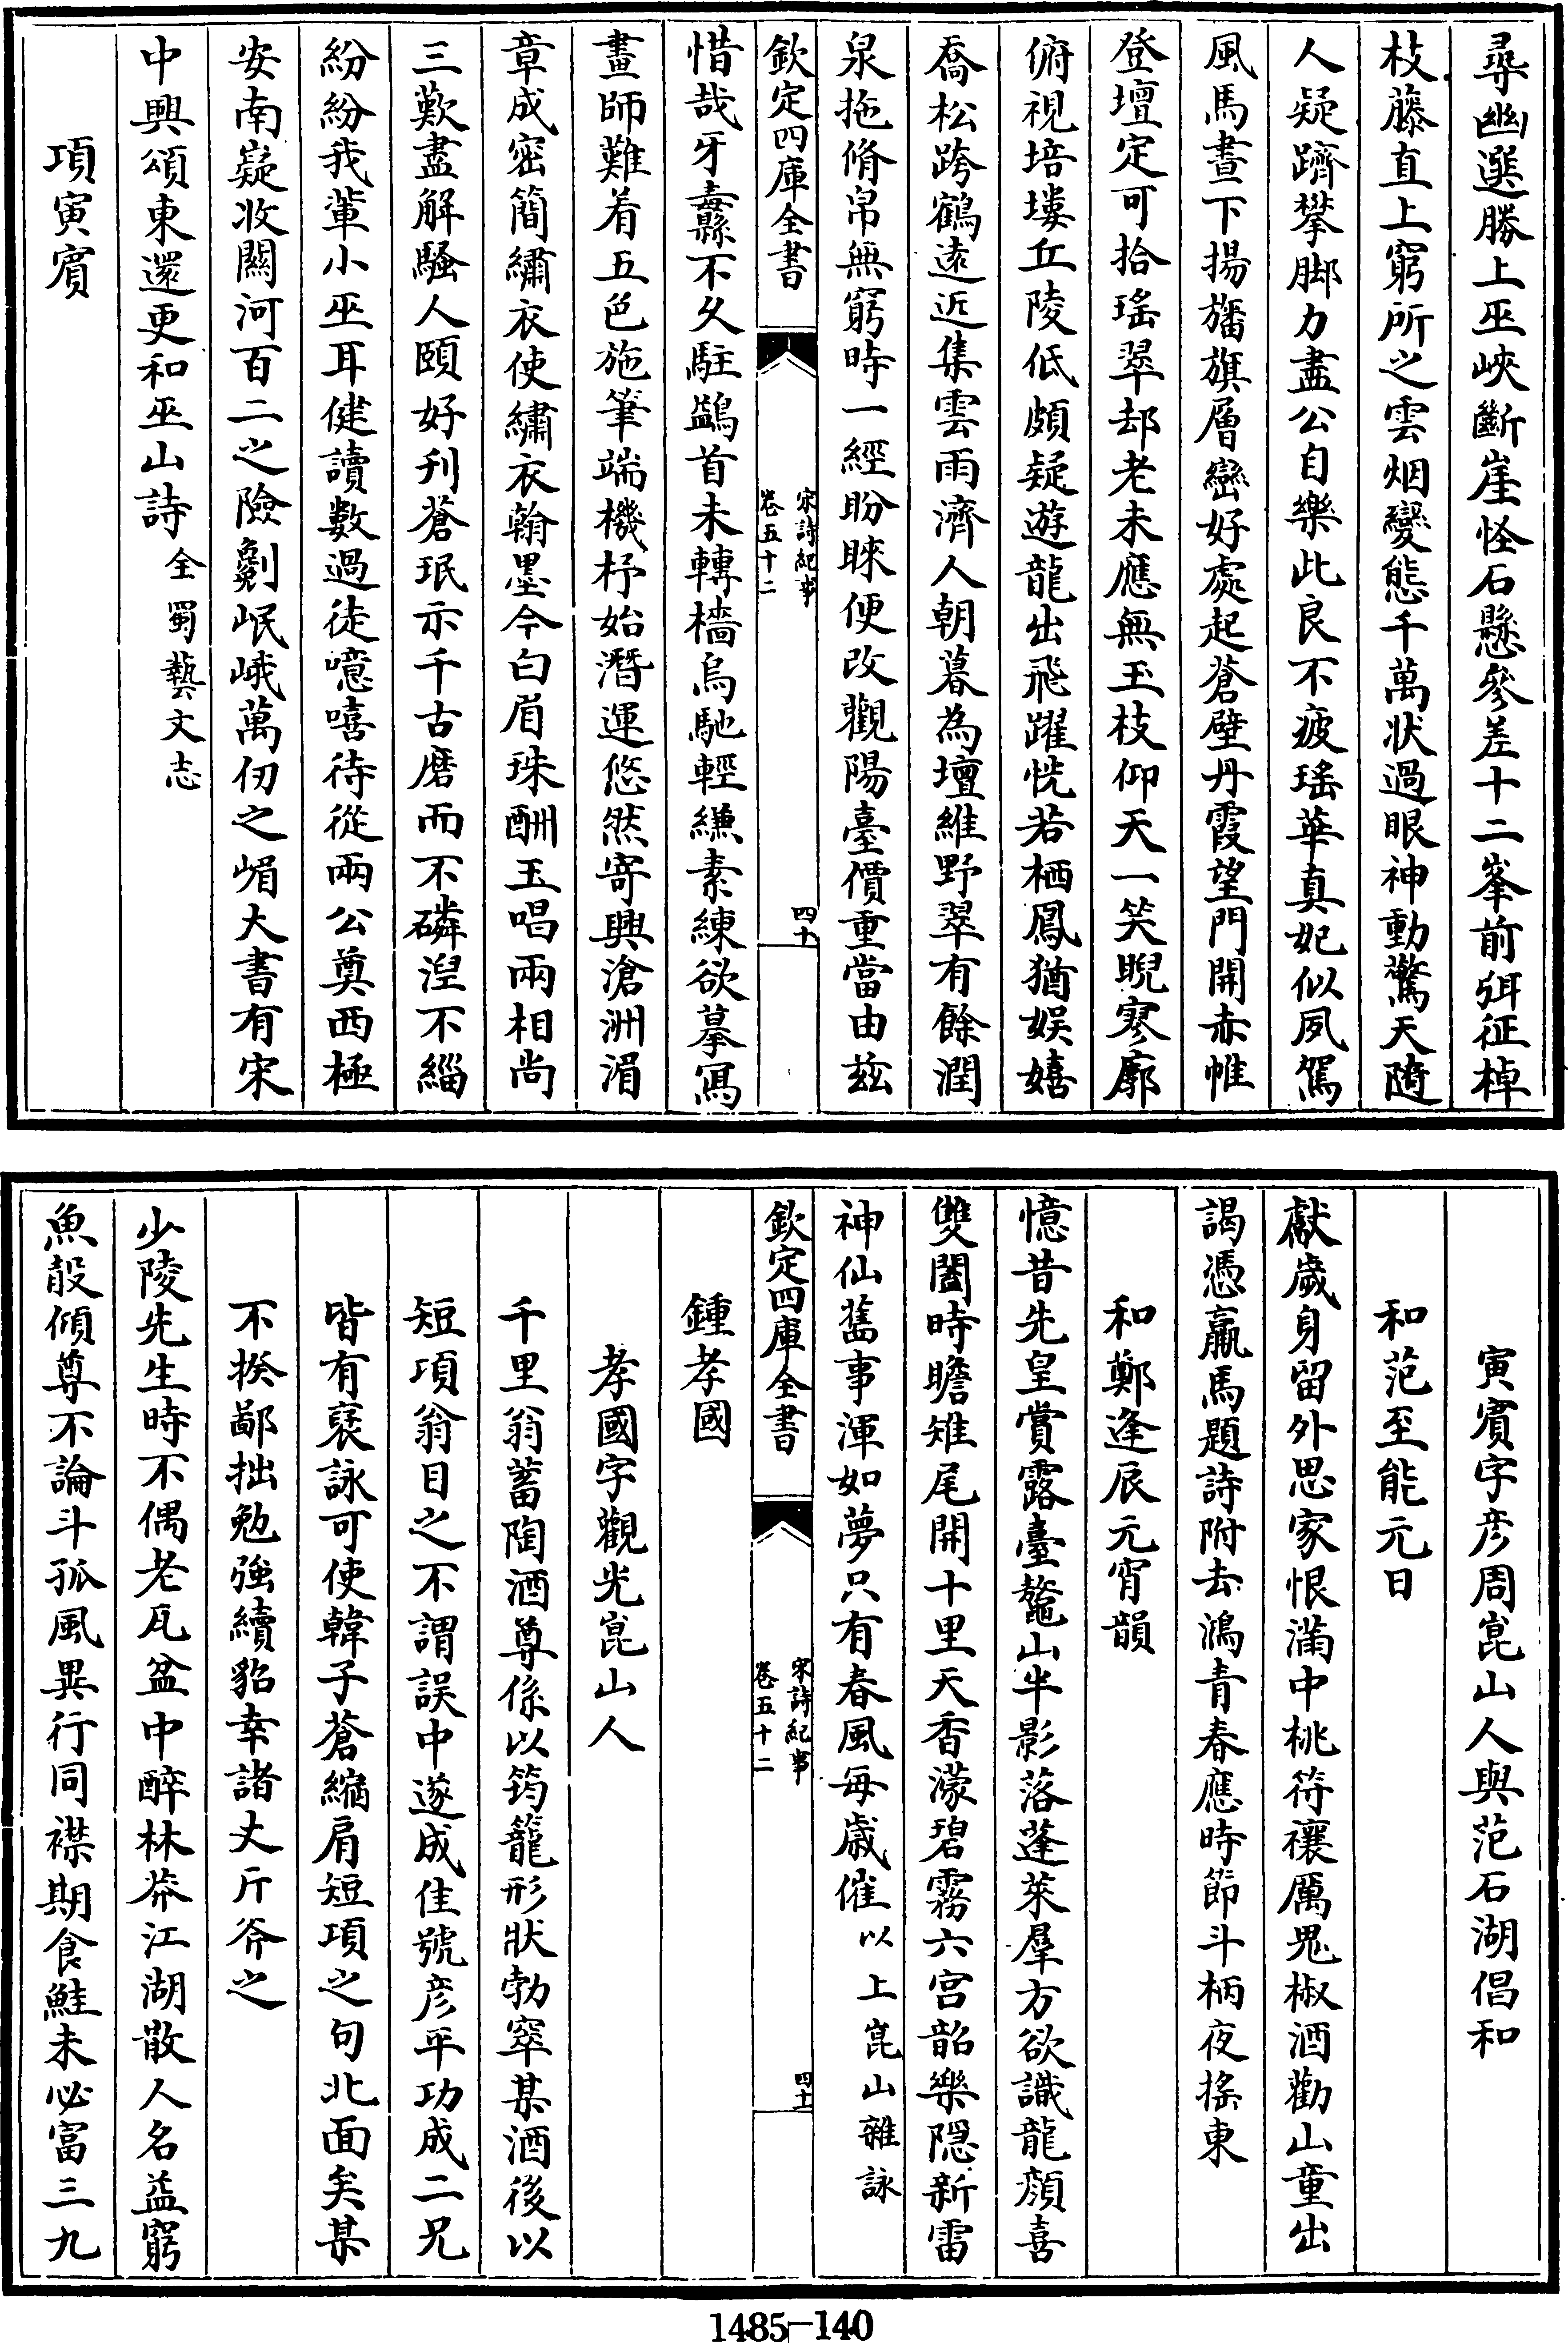 尋幽選勝上巫峽斷崖怪石懸參差十二峯前弭征棹
枝藤直上窮所之雲烟變態千萬狀過眼神動驚天隨
人疑躋攀脚力盡公自樂此良不疲瑤華真妃似夙駕
風馬晝下揚旛旗層巒好處起蒼壁丹霞望門開赤帷
登壇定可拾瑤翠却老未應無玉枝仰天一笑睨寥廓
俯視培塿丘陵低頗疑遊龍出飛躍恍若栖鳳猶娱嬉
喬松跨鶴遠近集雲雨濟人朝暮為壇維野翠有餘潤
泉拖脩帛無窮時一經盼睞便改觀陽臺價重當由兹
欽定四庫全書
宋詩紀事
卷五十二
四十
惜哉牙纛不久駐鷁首未轉檣烏馳輕縑素練欲摹寫
畫師難着五色施筆端機杼始潛運悠然寄興滄洲湄
章成密簡繡衣使繡衣翰墨今白眉珠酬玉唱兩相尚
三歎盡解騷人頤好刋蒼珉示千古磨而不磷湼不緇
紛紛我輩小巫耳健讀數過徒噫嘻待從兩公奠西極
安南嶷收闗河百二之險劖岷峨萬仞之嵋大書有宋
中興頌東還更和巫山詩 仝蜀藝文志
項寅賓
寅賓字彦周崑山人與范石湖倡和
和范至能元日
獻歲身留外思家恨滿中桃符禳厲鬼椒酒勸山童出
謁憑羸馬題詩附去鴻青春應時節斗柄夜搖東
和鄭逢辰元宵韻
憶昔先皇賞露臺鼇山半影落蓬萊羣方欲識龍顔喜
雙闔時瞻雉尾開十里天香濛碧霧六宫韶樂隠新雷
神仙舊事渾如夢只有春風每歲催 以上崑山雜詠
欽定四庫全書
宋詩紀事
卷五十二
四十一
鍾孝國
孝國字觀光崑山人
千里翁蓄陶酒尊係以筠籠形狀勃窣某酒後以
短項翁目之不謂誤中遂成佳號彦平功成二兄
皆有裦詠可使韓子蒼縮肩短項之句北面矣某
不揆鄙拙勉強續貂幸諸丈斤斧之
少陵先生時不偶老瓦盆中醉林莽江湖散人名益窮
魚殽傾尊不論斗孤風異行同襟期食鮭未必富三九
1485-140